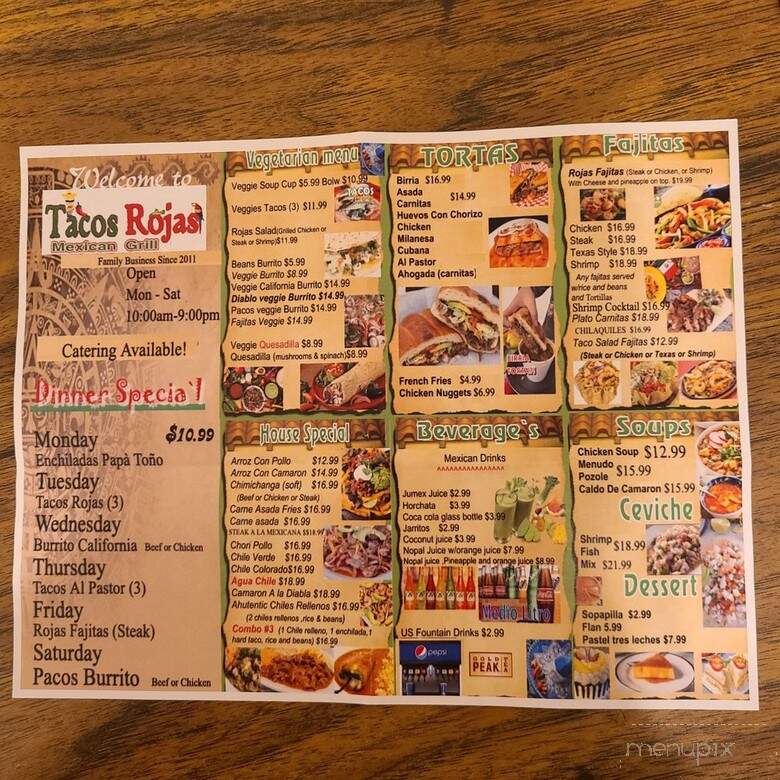 Welcome to
Tacos Rojas
Mexican Grill
Family Business Since 2011
Open
Mon - Sat
10:00am-9:00pm
Catering Available!
Dinner Specia`l
$10.99
Monday
Enchiladas Papà Toño
Tuesday
Tacos Rojas (3)
Wednesday
Burrito California Beef or Chicken
Thursday
Tacos Al Pastor (3)
Friday
Rojas Fajitas (Steak)
Saturday
Pacos Burrito Beef or Chicken
Vegetarian menu
Veggie Soup Cup $5.99 Bolw $10.99
Veggies Tacos (3) $11.99
TACOS
Rojas Salad(Grilled Chicken or
Steak or Shrimp)$11.99
Beans Burrito $5.99
Veggie Burrito $8.99
Veggie California Burrito $14.99
Diablo veggie Burrito $14.99
Pacos veggie Burrito $14.99
Fajitas Veggie $14.99
Veggie Quesadilla $8.99
Quesadilla (mushrooms & spinach)$8.99
House Special
Arroz Con Pollo $12.99
Arroz Con Camaron $14.99
Chimichanga (soft) $16.99
(Beef or Chicken or Steak)
Carne Asada Fries $16.99
Carne asada $16.99
STEAK A LA MEXICANA $$18.99
Chori Pollo $16.99
Chile Verde $16.99
Chile Colorado$16.99
Agua Chile $18.99
Camaron A la Diabla $18.99
Ahutentic Chiles Rellenos $16.99
(2 chiles rellenos ,rice & beans)
Combo #3 (1 Chile relleno, 1 enchilada,1
hard taco, rice and beans) $16.99
TORTAS
Birria $16.99
Asada
$14.99
Carnitas
Huevos Con Chorizo
Chicken
Milanesa
Cubana
Al Pastor
Ahogada (carnitas)
BIRRIA
French Fries $4.99
Chicken Nuggets $6.99
Beverage`s
Mexican Drinks
Jumex Juice $2.99
Horchata $3.99
Coca cola glass bottle $3.99
Jarritos $2.99
Coconut juice $3.99
Nopal Juice w/orange juice $7.99
Nopal juice ,Pineapple and orange juice $8.99
Medio Litro
US Fountain Drinks $2.99
pepsi
GOLD
PEAK
TEA
Fajitas
Rojas Fajitas (Steak or Chicken, or Shrimp)
With Cheese and pineapple on top. $19.99
Chicken $16.99
Steak $16.99
Texas Style $18.99
Shrimp $18.99
Any fajitas served
w/rice and beans
and Tortillas
Shrimp Cocktail $16.99
Plato Carnitas $18.99
CHILAQUILES $16.99
Taco Salad Fajitas $12.99
(Steak or Chicken or Texas or Shrimp)
Soups
Chicken Soup $12.99
Menudo
$15.99
Pozole
Caldo De Camaron $15.99
Ceviche
Shrimp
$18.99
Fish
Mix $21.99
Dessert
Sopapilla $2.99
Flan 5.99
Pastel tres leches $7.99
menupix